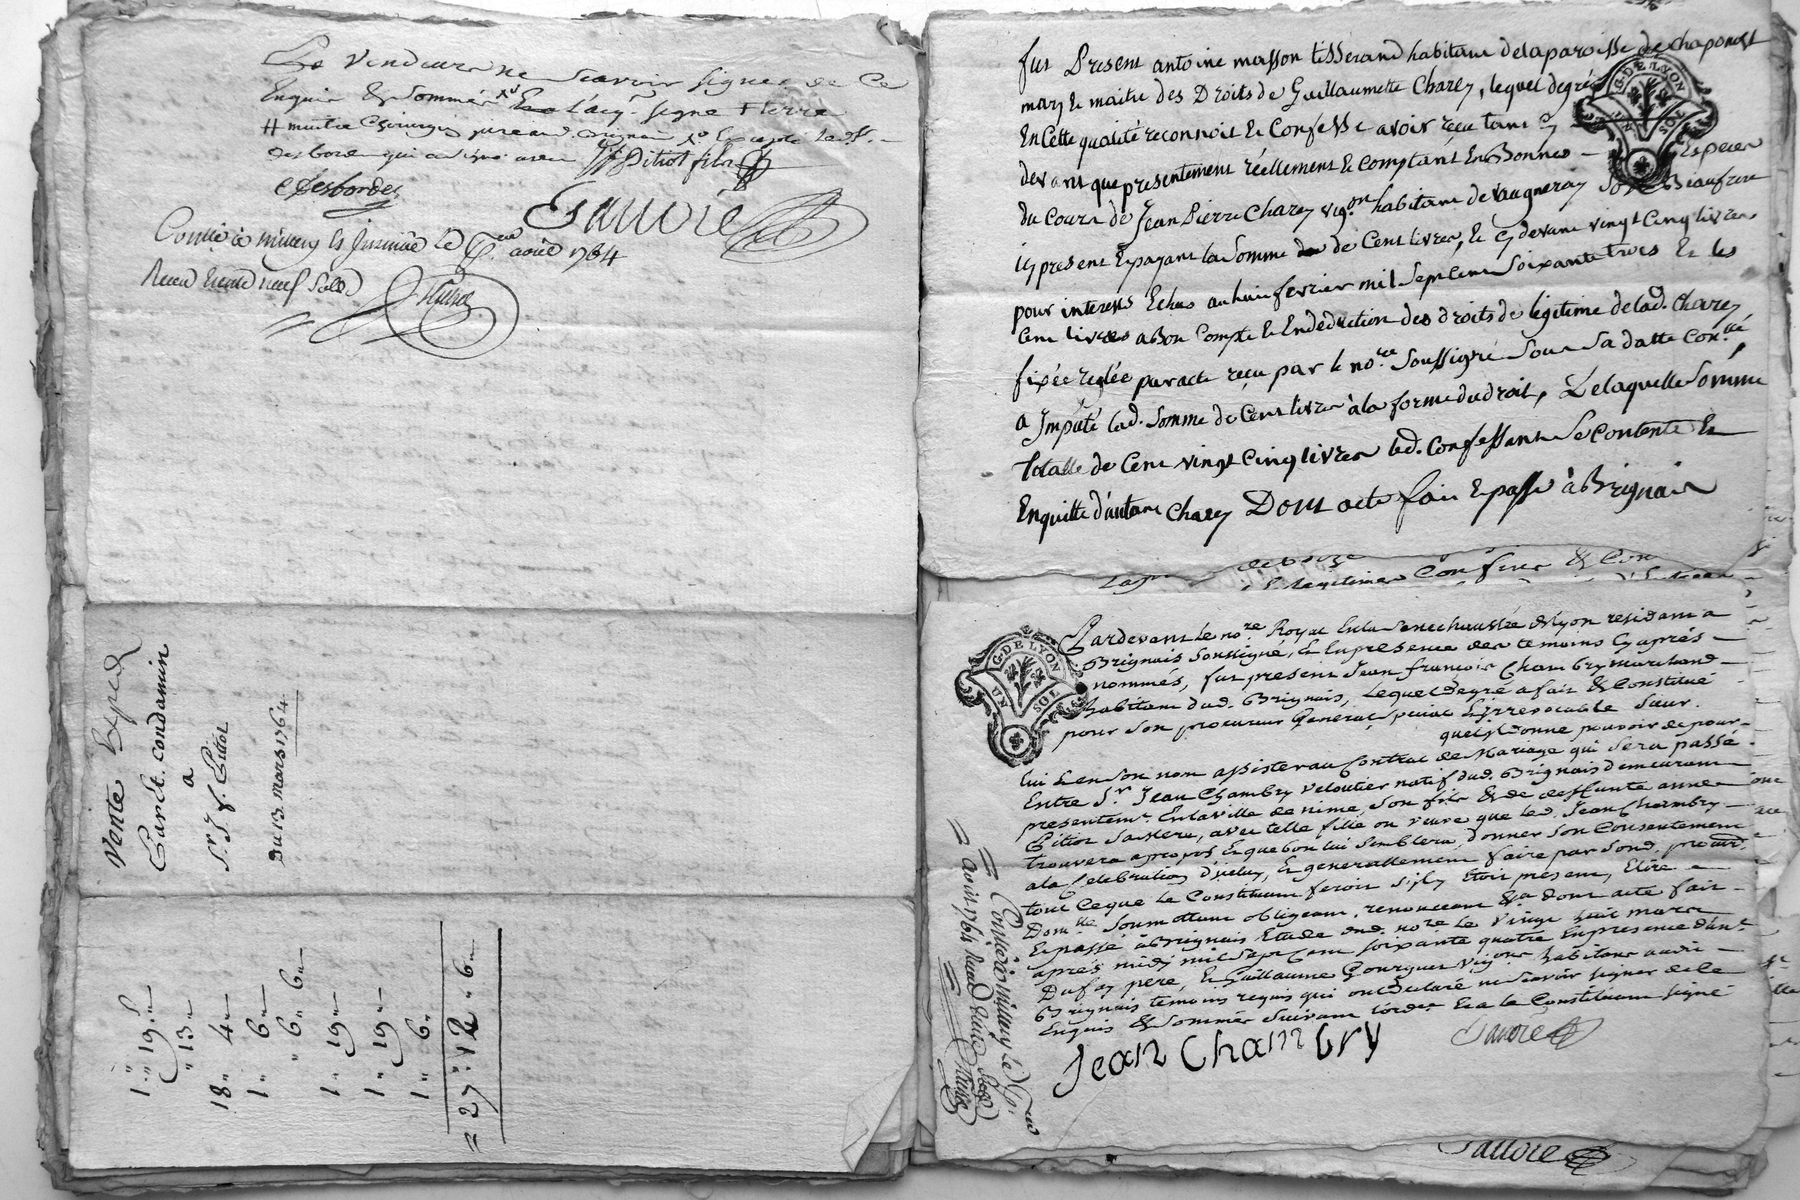 Le vendeur ne scavoir signer de ce
Enquis & Sommé signe
desbordes qui a signé avec Pitiot fils
Desbordes
Favore
août 1764
Recu trente neuf Sols
Vente Exped.
Condamin
a
Sr. J. f. Pitiot
Du 13. mars 1764
1 „ 19 „
„ 13 „
18 „ 4 „
1 „ 6 „
„ 6 „ 6 „
1 „ 19 „
1 „ 19 „
1 „ 6 „
= 27 „ 12 „ 6 „
fut Present antoine masson tisserand habitant de la paroisse de Chaponost
mary & maitre des Droits de Guillaumette Charey, lequel degré
En Cette qualité reconnoit & Confesse avoir recu tant cy
devant que presentement réellement & Comptant En Bonnes Especes
du Cours de Jean Pierre Charey vig.on habitant de vaugneray Son Beaufrere
icy present & payant la Somme de Cent livres, & cy devant vingt Cinq livres
pour interests Echus au huit fevrier mil Sept Cent Soixante trois Et les
Cent livres a Bon Compte & En deduction des droits de legitime de lad. Charey
fixée reglée par acte reçu par le no.re Soussigné Sous Sa datte Con.llé
a Imputé lad. Somme de Cent livres à la forme du droit, De laquelle Somme
totalle de Cent vingt Cinq livres led. Confessant Se Contente &
En quitte d'autant Charey Dont acte fait & passé à Brignais
G. DE LYON
UN SOL
legitimes
Pardevant le no.re Royal En la Senechaussée de Lyon residant a
Brignais Soussigné, & En presence des temoins Cy après
nommés, fut present Jean françois Chambry marchand
habitant dud. Brignais, Lequel degré a fait & Constitué
pour Son procureur General Special & Irrevocable Sieur.
quel il Donne pouvoir de pour
lui & en Son nom assister au Contrat de Mariage qui Sera passé
Entre S.r Jean Chambry Veloutier natif dud. Brignais demeurant
presentem.t En la ville de nime, Son fils & de deffunte anne
Pitiot Sa Mere, avec telle fille ou veuve que led. Jean Chambry
trouvera apropos & que bon lui Semblera, donner Son Consentement
a la Celebration d'icelui, & generallement faire par Sond. procur.
tout Ceque le Constituant feroit S'il y Etoit present, Elire
Dom.lle Soumettant obligeant, renonceant &a Dont acte fait
& passé à Brignais Etude dud. no.re le Vingt huit mars
après midy mil Sept Cent Soixante quatre En presence d'ant.
Dufay pere, & Guillaume Gourguet Vig.ons habitans audit
Brignais temoins requis qui ont Declaré ne Scavoir Signer de ce
Enquis & Sommés Suivant l'orde. & a le Constituant Signé
Jean Chambry
Favore
G. DE LYON
UN SOL
août 1764
Favore